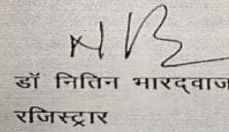 डॉ नितिन भारद्वाज
रजिस्ट्रार